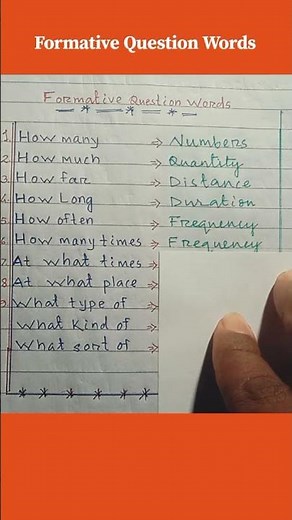 Formative Question Words
Formative Question Words
1. How many → Numbers
2. How much → Quantity
3. How far → Distance
4. How Long → Duration
5. How often → Frequency
6. How many times → Frequency
7. At what times →
8. At what place →
9. What type of →
What Kind of →
What sort of →